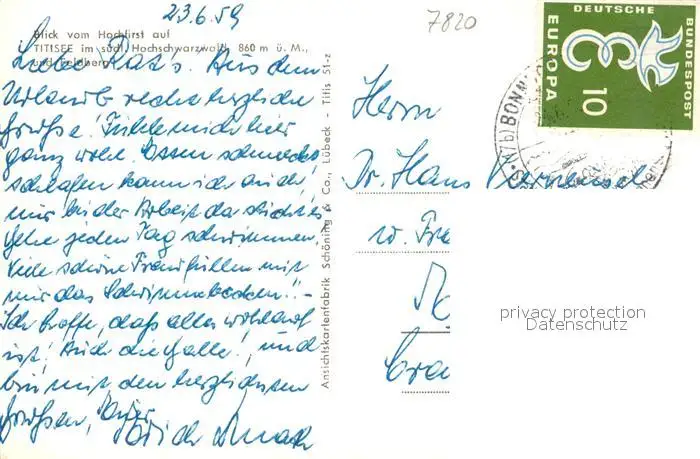 23.6.59
7820
Blick vom Hochfirst auf
TITISEE im südl. Hochschwarzwald, 860 m ü. M.,
und Feldberg
Liebe Rat's. Aus dem
Urlaub recht herzliche
Grüße! Fühle mich hier
ganz wohl. Essen schmeckt,
schlafen kann ich auch,
nur bei der Arbeit da
Gehe jeden Tag schwimmen.
Viele schöne Frauen füllen mit
mir das Schwimmbecken!! -
Ich hoffe, daß alles wohlauf
ist! Auch die Galle!, und
bin mit den herzlichsten
Grüßen, Euer
Ansichtskartenfabrik Schöning & Co., Lübeck - Titis 51-z
DEUTSCHE
BUNDESPOST
EUROPA
10
BONN
Herrn
Dr. Hans
privacy protection
Datenschutz